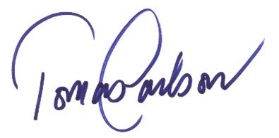 Tomas Carlson